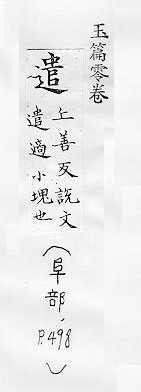 玉篇零卷
遣
上善反說文
遣適小塊也
（阜部，
P.498）